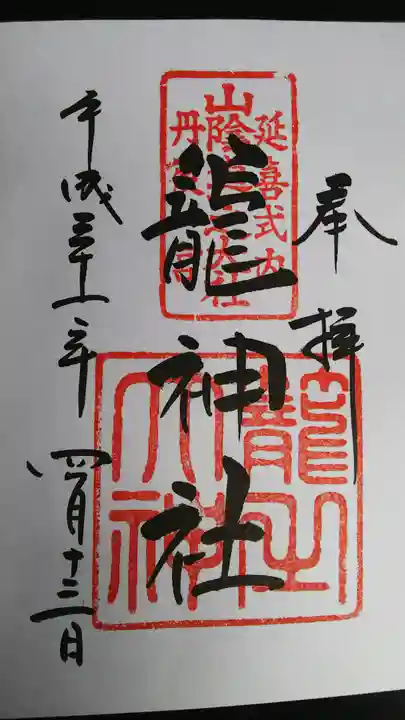 奉拝
延喜式内
山陰 大社
丹
籠神社
籠之
大神
平成三十一年 四月十三日